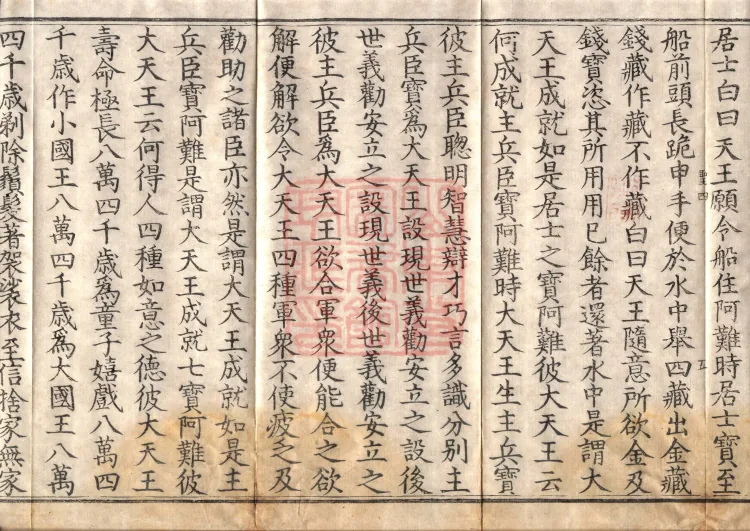 居士白曰天王願令船住阿難時居士寶至
船前頭長跪申手便於水中舉四藏出金藏
錢藏作藏不作藏白曰天王隨意所欲金及
錢寶恣其所用用已餘者還著水中是謂大
天王成就如是居士之寶阿難彼大天王云
何成就主兵臣寶阿難時大天王生主兵寶
彼主兵臣聰明智慧辯才巧言多識分別主
兵臣寶為大天王設現世義勸安立之設後
世義勸安立之設現世義後世義勸安立之
彼主兵臣為大天王欲合軍衆便能合之欲
解便解欲令大天王四種軍衆不使疲乏及
勸助之諸臣亦然是謂大天王成就如是主
兵臣寶阿難是謂大天王成就七寶阿難彼
大天王云何得人四種如意之德彼大天王
壽命極長八萬四千歲為童子嬉戲八萬四
千歲作小國王八萬四千歲為大國王八萬
四千歲剃除鬚髮著袈裟衣至信捨家無家
聖四
五